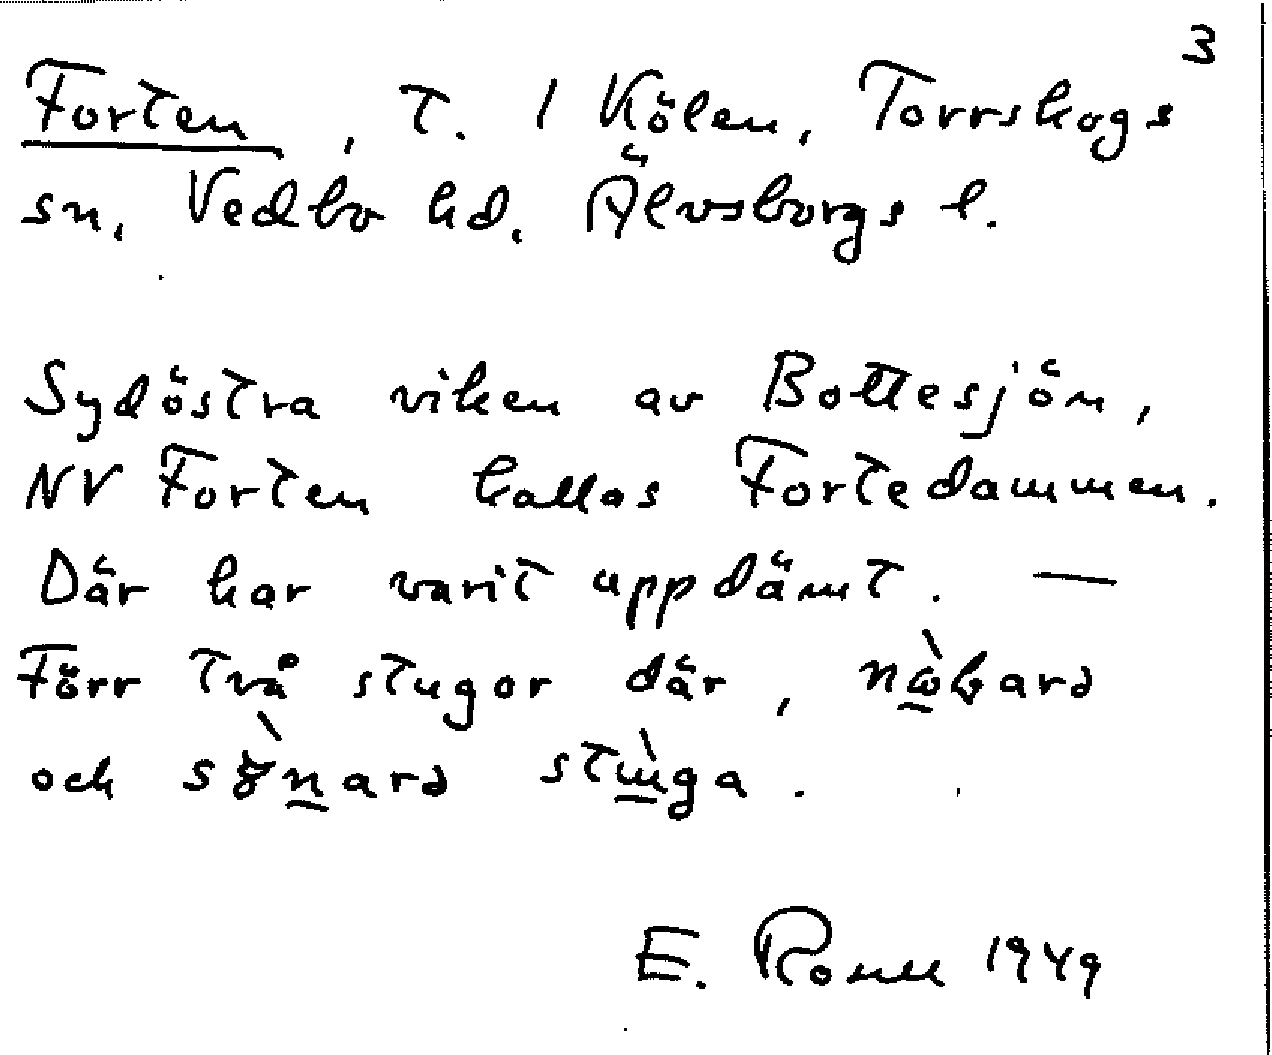 3
Forten, T. 1 Kölen, Torrskogs
sn. Vedbo hd. Älvsborgs l.
Sydöstra viken av Bottesjön,
NV Forten kallas Fortedammen.
Där har varit uppdämt. —
Förr två stugor där,
och stuga.
E. Rosell 1949